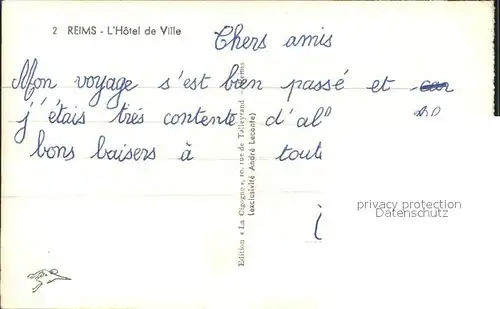 2 REIMS - L'Hôtel de Ville
Chers amis
Mon voyage s'est bien passé et
j'étais très contente d'al
bons baisers à tout
Edition « La Cigogne », 10, rue de Talleyrand - Reims
(exclusivité André Leconte)
privacy protection
Datenschutz